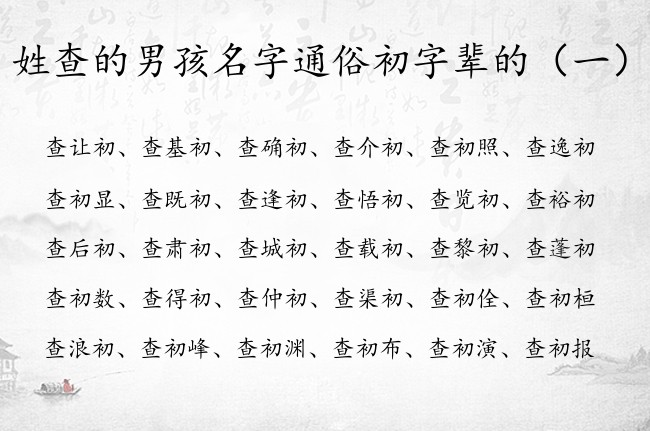 姓查的男孩名字通俗初字辈的（一）
查让初、查基初、查确初、查介初、查初照、查逸初
查初显、查既初、查逢初、查悟初、查览初、查裕初
查后初、查肃初、查城初、查载初、查黎初、查蓬初
查初数、查得初、查仲初、查渠初、查初佺、查初桓
查浪初、查初峰、查初渊、查初布、查初演、查初报